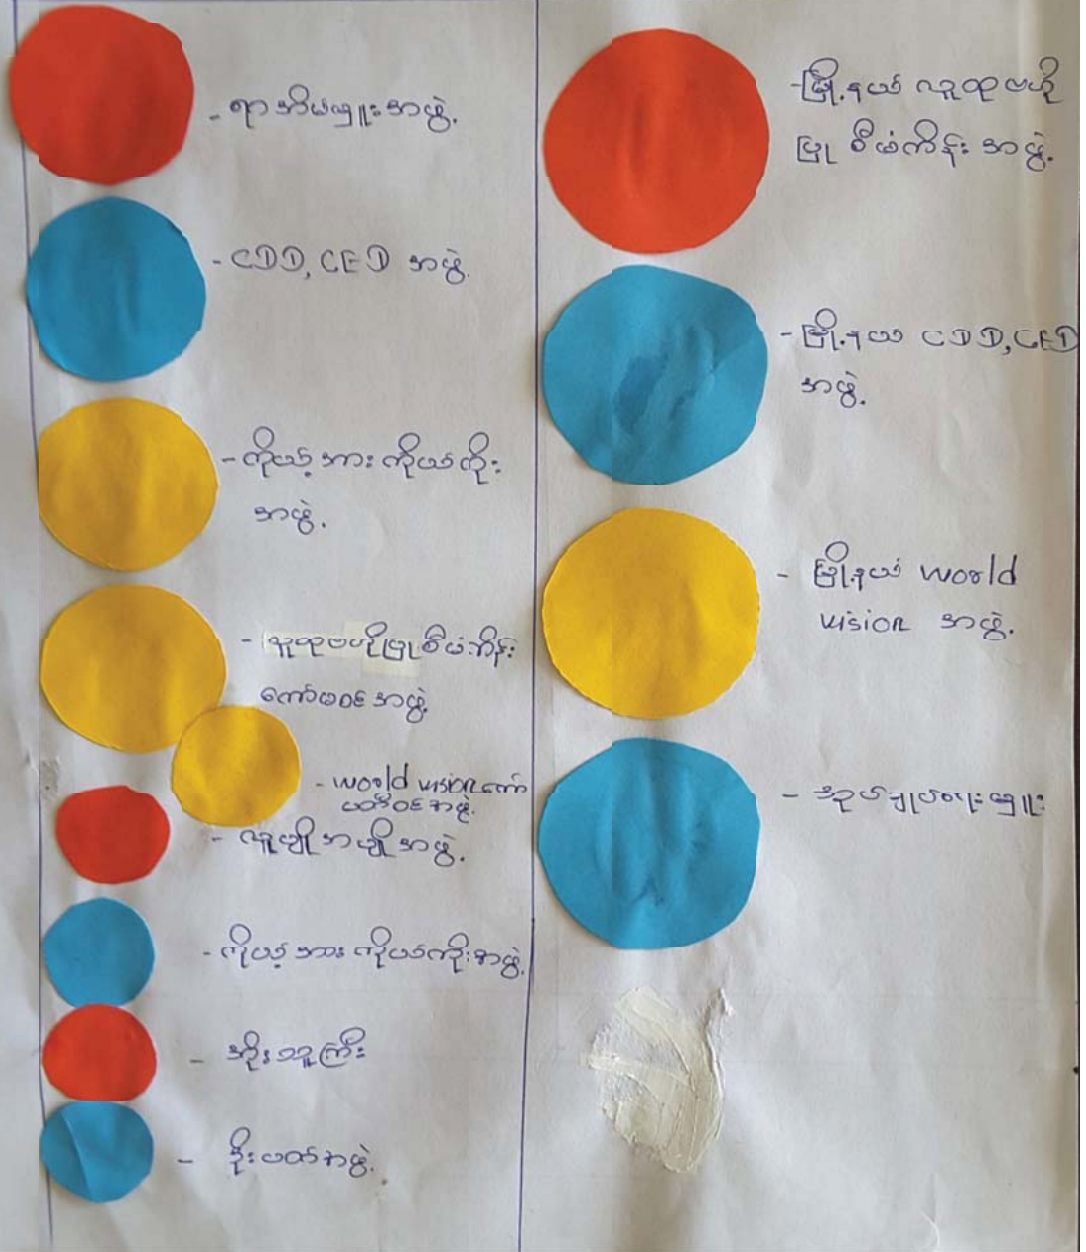 - ရာအိမ်မှူးအဖွဲ့.
- CDD, CED အဖွဲ့.
- ကိုယ့်အားကိုယ်ကိုး
အဖွဲ့.
- လူထုဗဟိုပြုစီမံကိန်း
ကော်မတီအဖွဲ့
- world vision ကော်
မတီဝင်အဖွဲ့.
- လူမျိုအမျိုအဖွဲ့.
- ကိုယ့်အားကိုယ်ကိုးအဖွဲ့.
- အိုးသူကြီး
- နိုးဖတ်အဖွဲ့.
- မြို့နယ် လူထုဗဟို
ပြု စီမံကိန်း အဖွဲ့.
- မြို့နယ် CDD, CED
အဖွဲ့.
- မြို့နယ် world
vision အဖွဲ့.
- အုပ်ချုပ်ရေးမှူး